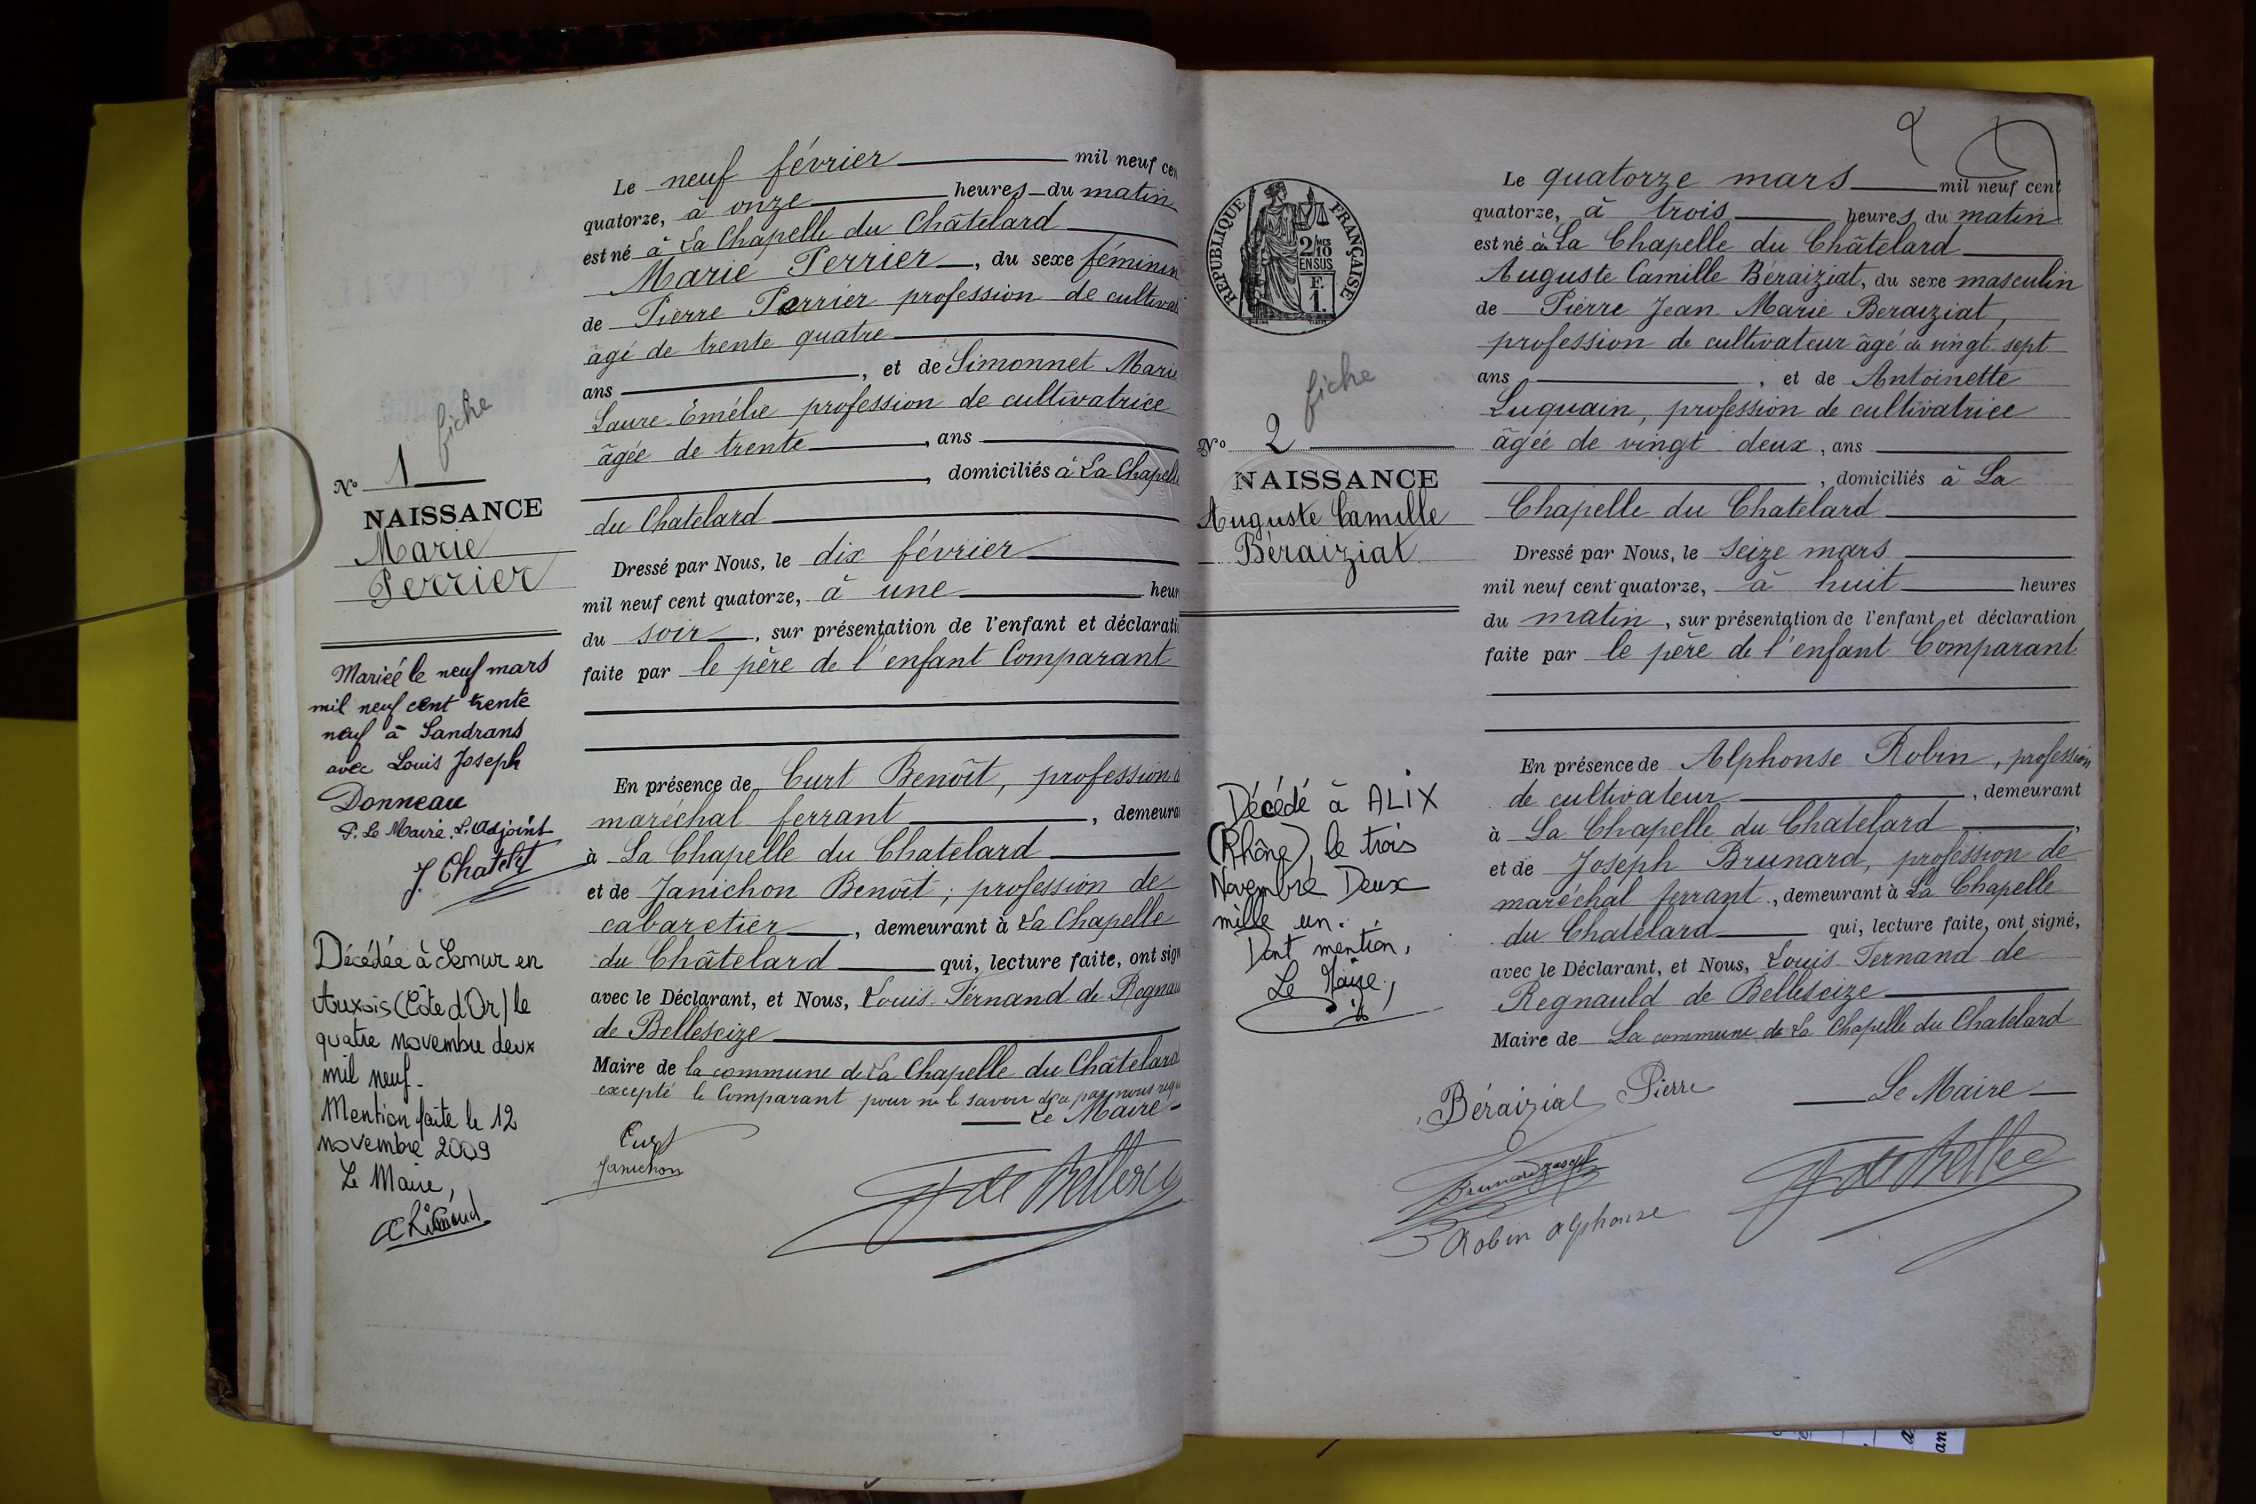 Le neuf février mil neuf cen
quatorze, à onze heures du matin
est né à La Chapelle du Châtelard
Marie Perrier, du sexe féminin
de Pierre Perrier profession de cultivat
âgé de trente quatre
ans, et de Simonnet Marie
Laure Emélie profession de cultivatrice
âgée de trente, ans
, domiciliés à La Chapelle
du Chatelard
Dressé par Nous, le dix février
mil neuf cent quatorze, à une heur
du soir, sur présentation de l'enfant et déclarati
faite par le père de l'enfant Comparant
En présence de Curt Benoît, profession d
maréchal ferrant, demeura
à La Chapelle du Chatelard
et de Janichon Benoît, profession de
cabaretier, demeurant à La Chapelle
du Châtelard qui, lecture faite, ont sign
avec le Déclarant, et Nous, Louis Fernand de Regnau
de Bellescize
Maire de la commune de La Chapelle du Châtelard
excepté le Comparant pour ne le savoir de ce par nous requ
Le Maire
Curt
Janichon
N° 1
fiche
NAISSANCE
Marie
Perrier
Mariée le neuf mars
mil neuf cent trente
neuf à Sandrans
avec Louis Joseph
Donneau
P. Le Maire. L'Adjoint
J. Chatelet
Décédée à Semur en
Auxois (Côte d'Or) le
quatre novembre deux
mil neuf.
Mention faite le 12
novembre 2009
Le Maire,
2
RÉPUBLIQUE FRANÇAISE
2/10 MES
EN SUS
F.
1.
fiche
N° 2
NAISSANCE
Auguste Camille
Béraiziat
Décédé à ALIX
(Rhône), le trois
Novembre Deux
mille un.
Dont mention,
Le Maire,
Le quatorze mars mil neuf cent
quatorze, à trois heures du matin
est né à La Chapelle du Châtelard
Auguste Camille Béraiziat, du sexe masculin
de Pierre Jean Marie Beraiziat,
profession de cultivateur âgé de vingt sept
ans, et de Antoinette
Luquain, profession de cultivatrice
âgée de vingt deux, ans
, domiciliés à La
Chapelle du Chatelard
Dressé par Nous, le seize mars
mil neuf cent quatorze, à huit heures
du matin, sur présentation de l'enfant et déclaration
faite par le père de l'enfant Comparant
En présence de Alphonse Robin, profession
de cultivateur, demeurant
à La Chapelle du Chatelard,
et de Joseph Brunard, profession de
maréchal ferrant, demeurant à La Chapelle
du Chatelard qui, lecture faite, ont signé,
avec le Déclarant, et Nous, Louis Fernand de
Regnauld de Bellescize
Maire de La commune de La Chapelle du Chatelard
Béraiziat Pierre
Le Maire
Brunard Joseph
Robin Alphonse